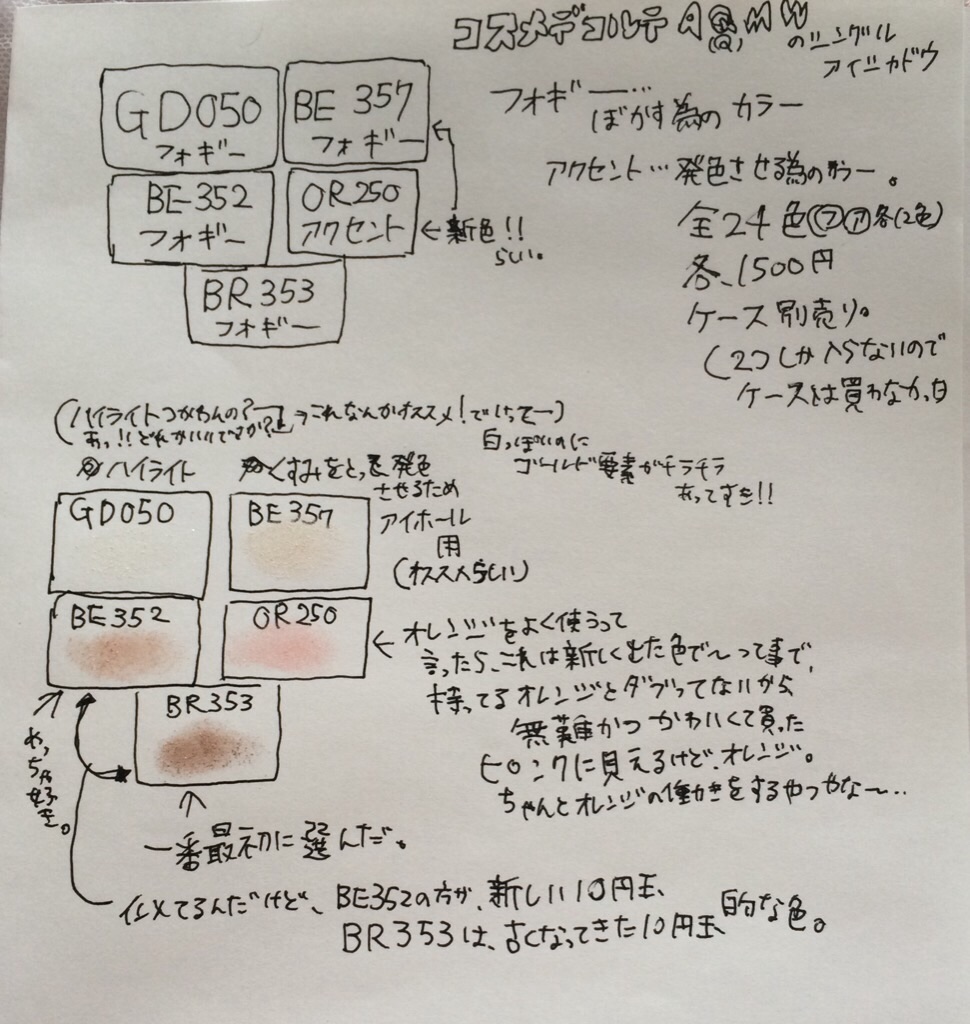 コスメデコルテ AQ MW
のシングル
アイシャドウ
GD050
フォギー
BE 357
フォギー
BE352
フォギー
OR250
アクセント
←新色!!
らしい。
BR353
フォギー
フォギー…
ぼかす為の カラー
アクセント…発色させる為のカラー。
全24色(フア各12色)
各、1500円
ケース別売り。
(2つしか入らないので
ケースは買わなかった
(ハイライトつかわんの?
あっ!!どれがいいですか?→これなんかオススメ!でいってー)
白っぽいのに
ゴールド要素がチラチラ
あってすき!!
ハイライト
くすみをとって発色
させるため
アイホール
用
(オススメらしい)
GD050
BE357
BE352
OR250
BR353
←オレンジをよく使うって
言ったら、これは新しく出た色で〜って事で、
持ってるオレンジとダブってないから
無難かつ かわいくて買った
ピンクに見えるけど、オレンジ。
ちゃんとオレンジの働きをするやつやな〜..
めっちゃ好き。
一番最初に選んだ。
似てるんだけど、BE352の方が、新しい10円玉、
BR353は、古くなってきた10円玉、的な色。